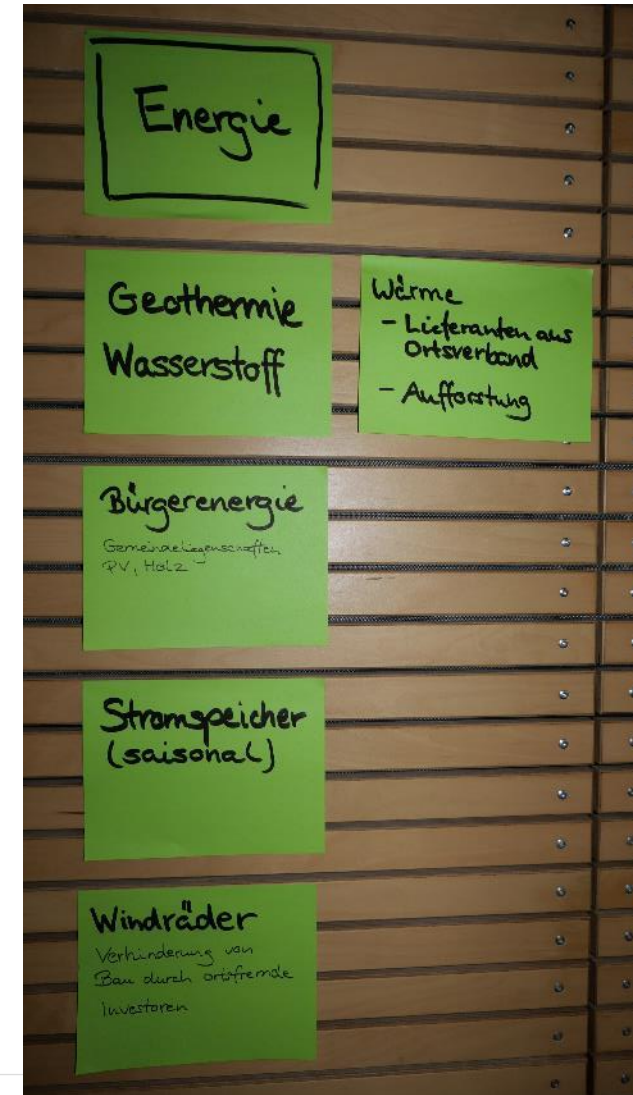 Energie
Geothermie
Wasserstoff
Wärme
- Lieferanten aus
Ortsverband
- Aufforstung
Bürgerenergie
Gemeindeliegenschaften
PV, Holz
Stromspeicher
(saisonal)
Windräder
Verhinderung von
Bau durch ortsfremde
Investoren